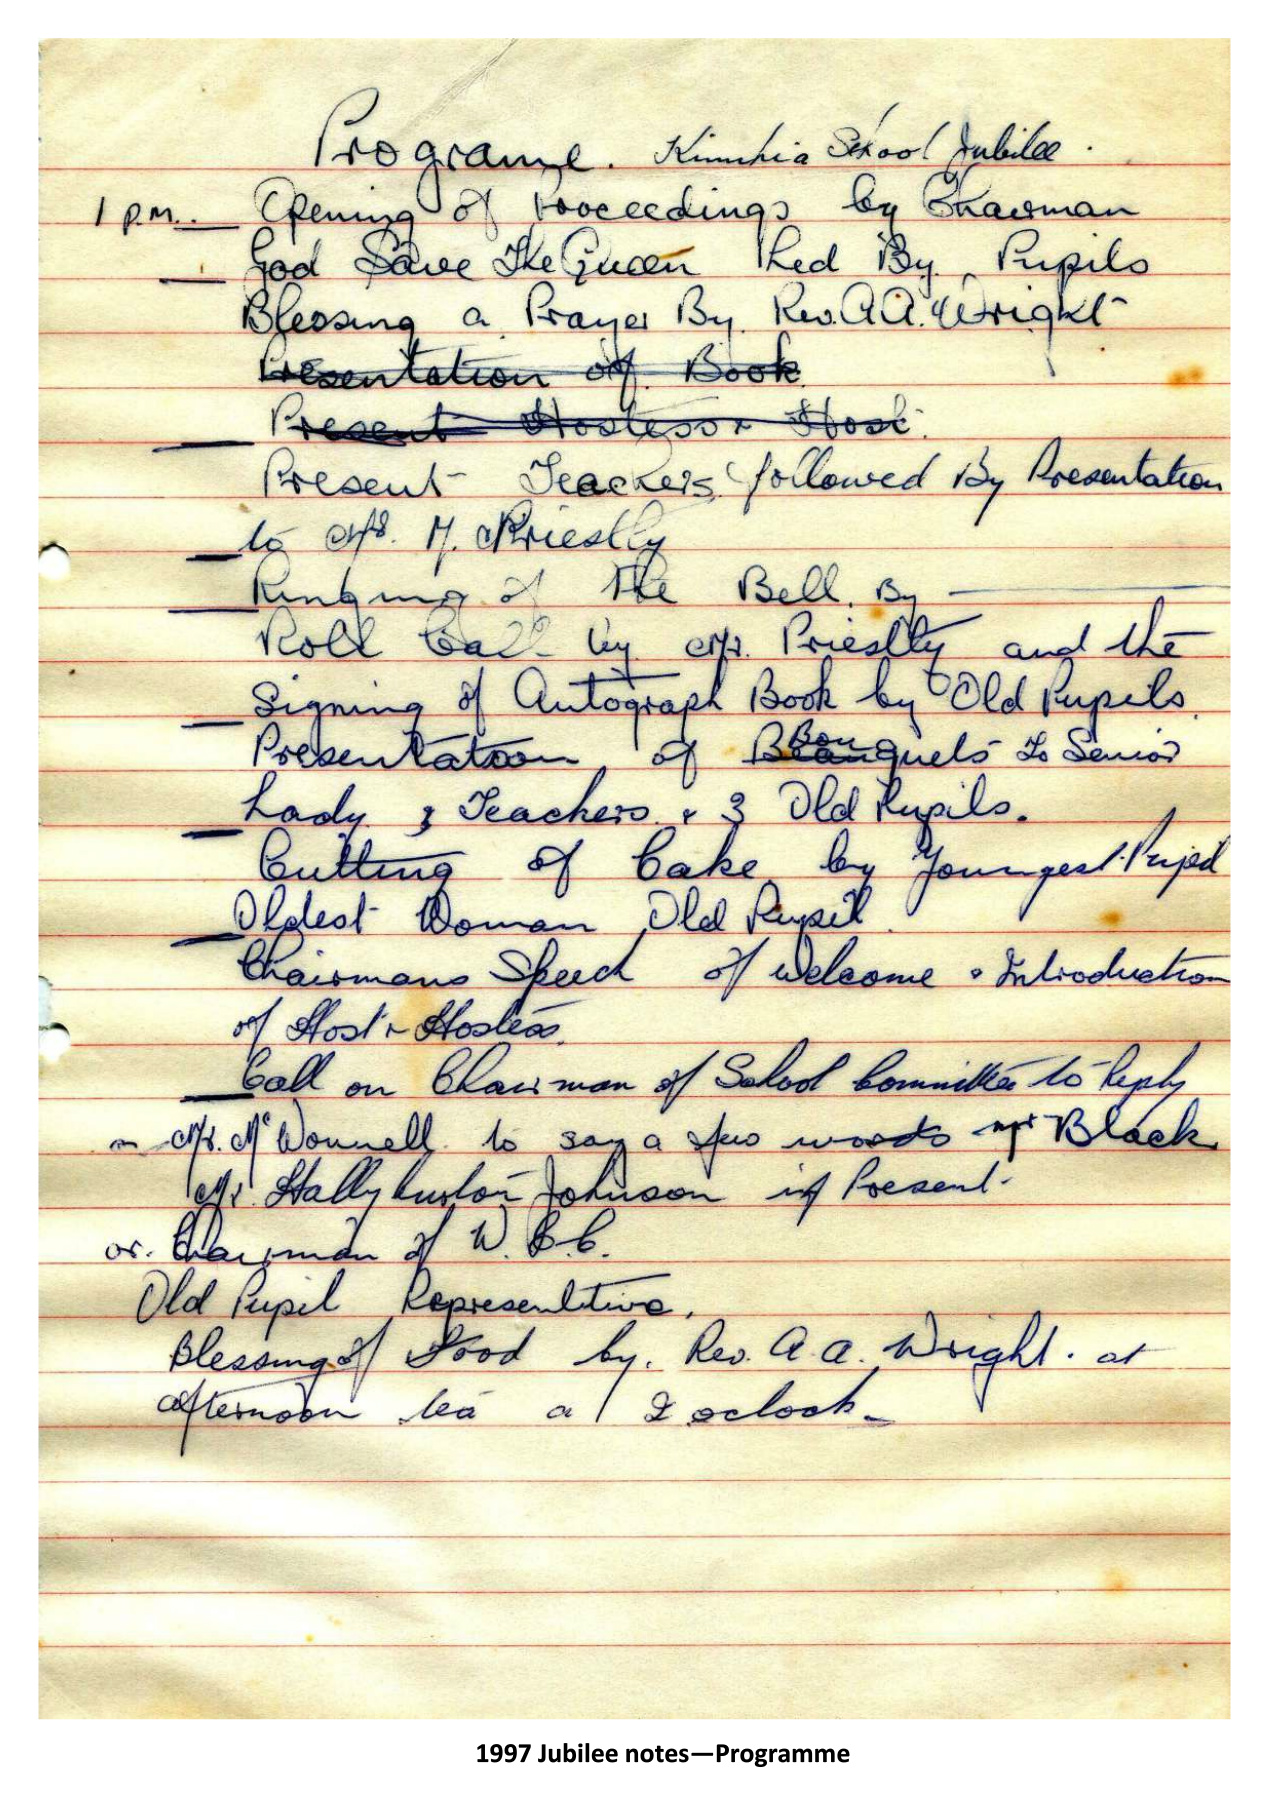 Programe. Kinnhia School Jubilee.
1 P.M. Opening of Proceedings by Chairman
God Save The Queen Led By Pupils
Blessing a Prayer By. Rev. A A. Wright
Presentation of Book
Present Hostess & Host.
Present Teachers followed By Presentation
to Mrs. M. Priestly
Ringing of The Bell. By
Roll Call by Mr. Priestly and the
Signing of Autograph Book by Old Pupils.
Presentation of Bouquets To Senior
Lady 3 Teachers & 3 Old Pupils.
Cutting of Cake by Youngest Pupil
Oldest Woman Old Pupil.
Chairmans Speech of welcome & Introduction
of Host & Hostess.
Call on Chairman of School Committee to Reply
Mr. McDonnell to say a few words Black
Mr. Hallyburton Johnson if Present.
or. Chairman of W.
Old Pupil Representitive.
Blessing of Food by. Rev. A. A. Wright. at
afternoon tea a 2 oclock
1997 Jubilee notes—Programme